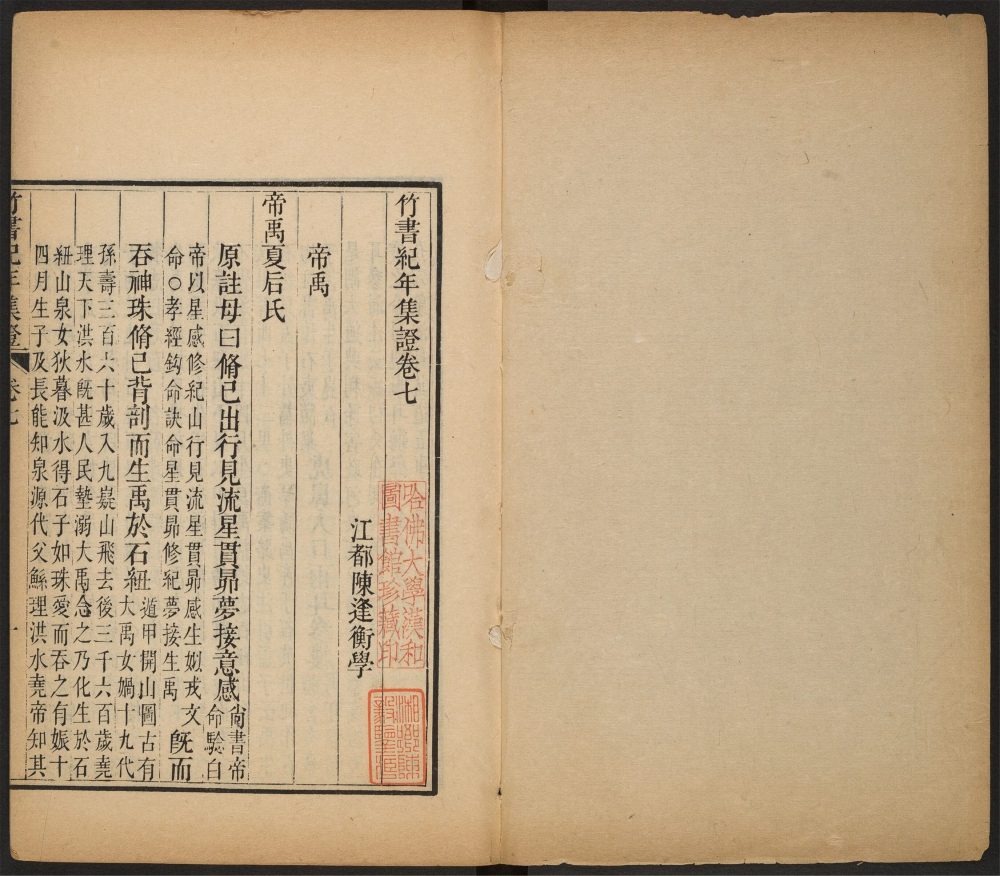 竹書紀年集證卷七
江都陳逢衡學
哈佛大學漢和
圖書館珍藏印
帝禹
帝禹夏后氏
原註母曰脩己出行見流星貫昴夢接意感
尙書帝
命驗白
帝以星感修紀山行見流星貫昴感生姒戎文
命○孝經鉤命訣命星貫昴修紀夢接生禹
旣而
吞神珠脩己背剖而生禹於石紐
遁甲開山圖古有
大禹女媧十九代
孫壽三百六十歲入九嶷山飛去後三千六百歲堯
理天下洪水旣甚人民墊溺大禹念之乃化生於石
紐山泉女狄暮汲水得石子如珠愛而吞之有娠十
四月生子及長能知泉源代父鯀理洪水堯帝知其
竹書紀年集證
卷七
一